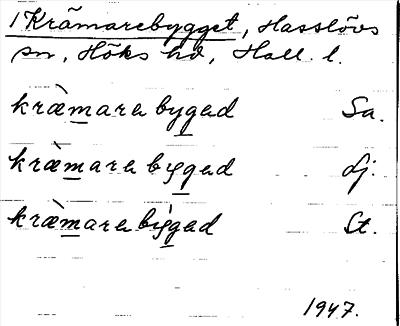 1 Krämarebygget, Hasslövs
sn, Höks hd, Hall. l.
kræ̀mara bygad Sa.
kræ̀mara bygad dj.
kræ̀mara bygad St.
1947.